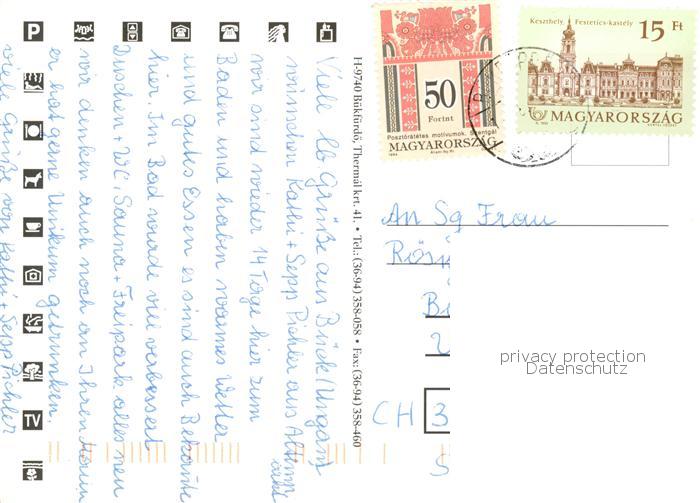 Viele lb Grüße aus Bück (Ungarn)
wünschen Kathi + Sepp Pichler aus
wir sind wieder 14 Tage hier zum
Baden und haben warmes Wetter
und gutes Essen es sind auch Bekannte
hier. Im Bad wurde viel verbessert
Duschen + WC, Sauna + Freipark alles neu
wir denken auch noch an Ihren Mann
er hat gerne Unikum getrunken.
viele Grüße von Kathi + Sepp Pichler
H-9740 Bükfürdő, Thermál krt. 41. • Tel.: (36-94) 358-058 • Fax: (36-94) 358-460
P
TV
50
Forint
Posztórátétes motívumok. Szentgál
1994
MAGYARORSZÁG
Keszthely, Festetics-kastély
15 Ft
MAGYARORSZÁG
An Sg Frau
CH 3
privacy protection
Datenschutz